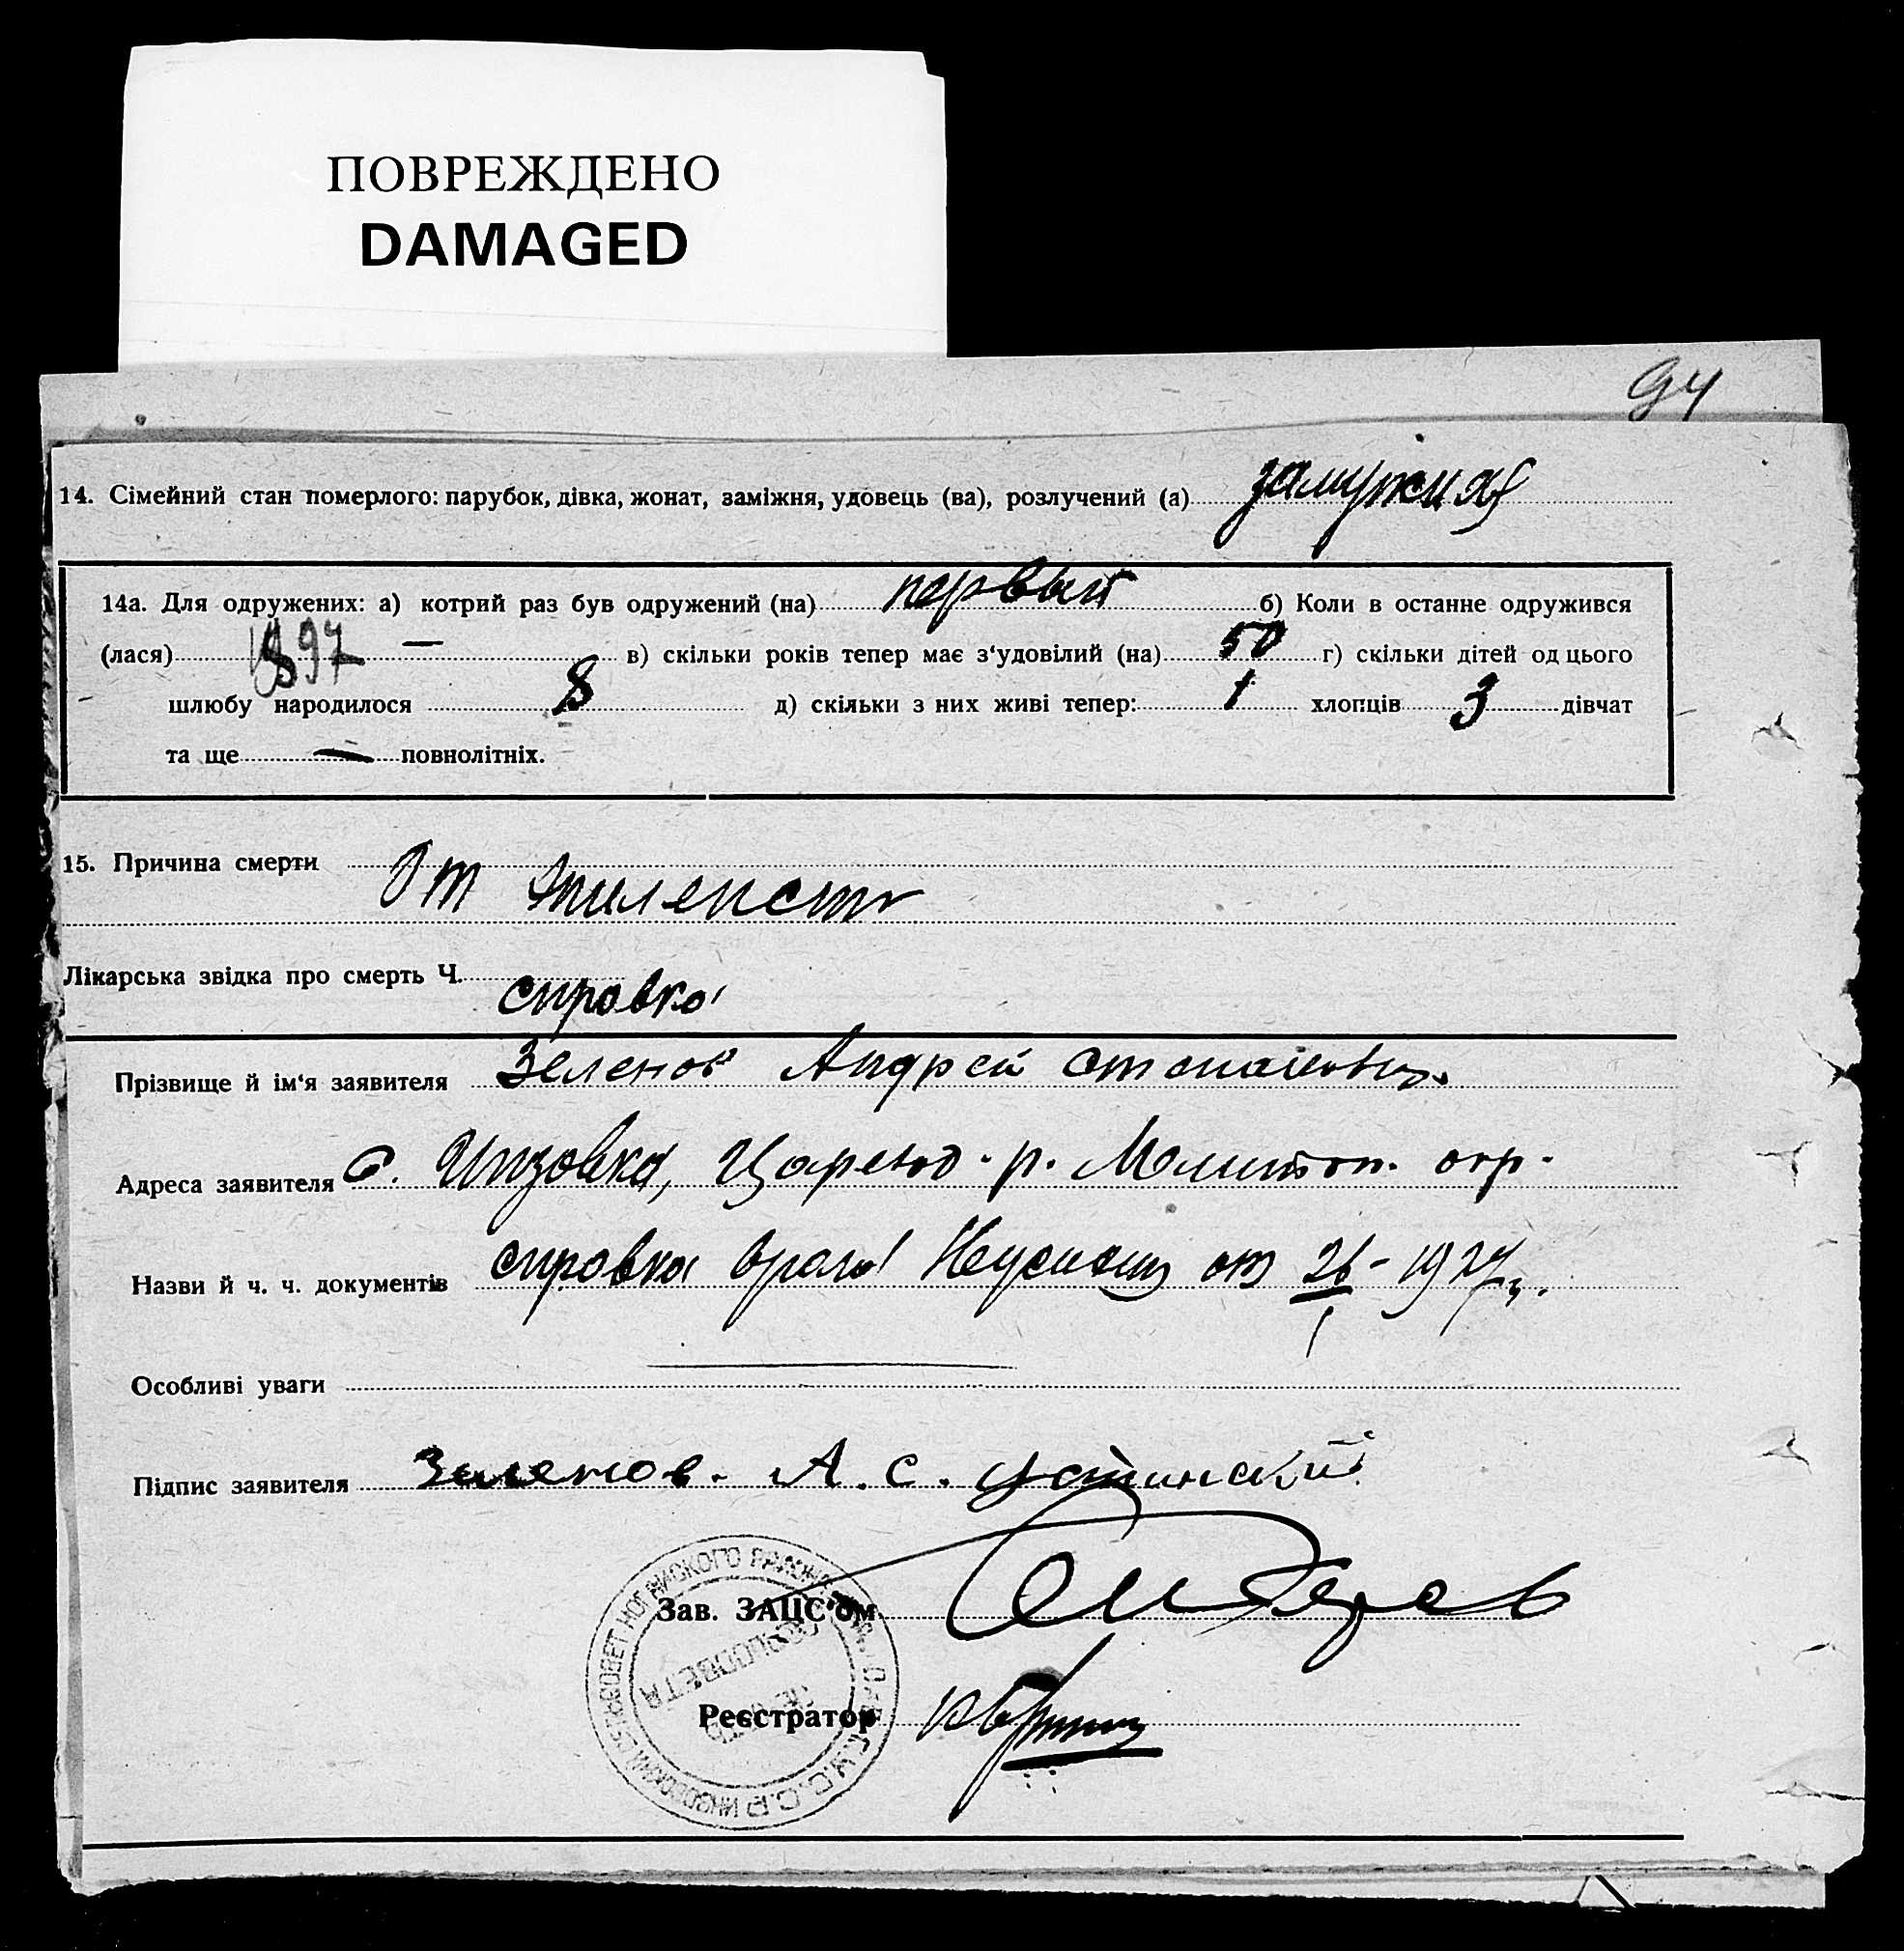 ПОВРЕЖДЕНО
DAMAGED
94
14. Сімейний стан померлого: парубок, дівка, жонат, заміжня, удовець (ва), розлучений (а) замужняя
14а. Для одружених: а) котрий раз був одружений (на) первый б) Коли в останне одружився
(лася) 1897 — в) скільки років тепер має з'удовілий (на) 50 г) скільки дітей од цього
шлюбу народилося 8 д) скільки з них живі тепер: 1 хлопців 3 дівчат
та ще — повнолітніх.
15. Причина смерти От
Лікарська звідка про смерть Ч. справка
Прізвище й ім'я заявителя Зеленов Андрей
Адреса заявителя с. Инзовка, р. Мелитоп. окр.
Назви й ч. ч. документів справка врача от 26/I - 1927 г.
Особливі уваги
Підпис заявителя Зеленов. А. С.
Зав. ЗАЦС'ом
Реєстратор